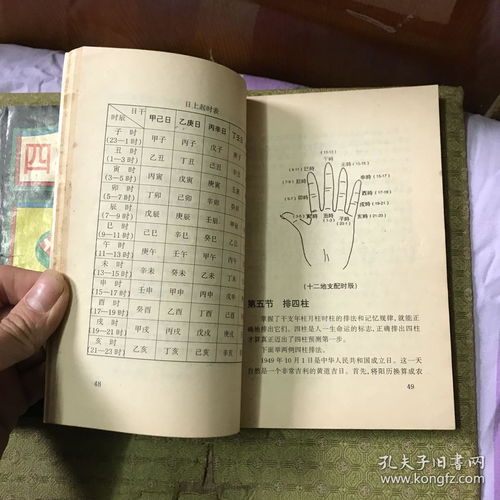 四
日上起时表
日干 甲己日 乙庚日 丙辛日
时辰
子时 甲子 丙子 戊子
(23—1时)
丑时 乙丑 丁丑 己丑
(1—3时)
寅时 丙寅 戊寅 庚寅
(3—5时)
卯时 丁卯 己卯 辛卯
(5—7时)
辰时 戊辰 庚辰 壬辰
(7—9时)
巳时 己巳 辛巳 癸巳
(9—11时)
午时 庚午 壬午 甲午
(11—13时)
未时 辛未 癸未 乙未
(13—15时)
申时 壬申 甲申 丙申
(15—17时)
酉时 癸酉 乙酉 丁酉
(17—19时)
戌时 甲戌 丙戌 戊戌
(19—21时)
亥时 乙亥 丁亥 己亥
(21—23时)
48
(11-13)
午時
(9-11) 巳時
未時 (13-15)
(7-9) 辰時
申時 (15-17)
(5-7) 卯時
酉時 (17-19)
戌時 (19-21)
(3-5) 寅時 丑時 子時 亥時 (21-23)
(1-3) (23-1)
(十二地支配时辰)
第五节 排四柱
掌握了干支年柱月柱时柱的排法和记忆规律，就能正
确地排出它们。四柱是人一生命运的标志，正确排出四柱
才算真正迈出了四柱预测第一步。
下面举两例四柱排法。
1949年10月1日是中华人民共和国成立日。这一天
自然是一个非常吉利的黄道吉日。首先，将阳历换算成农
49
孔夫子旧书网
www.kongfz.com